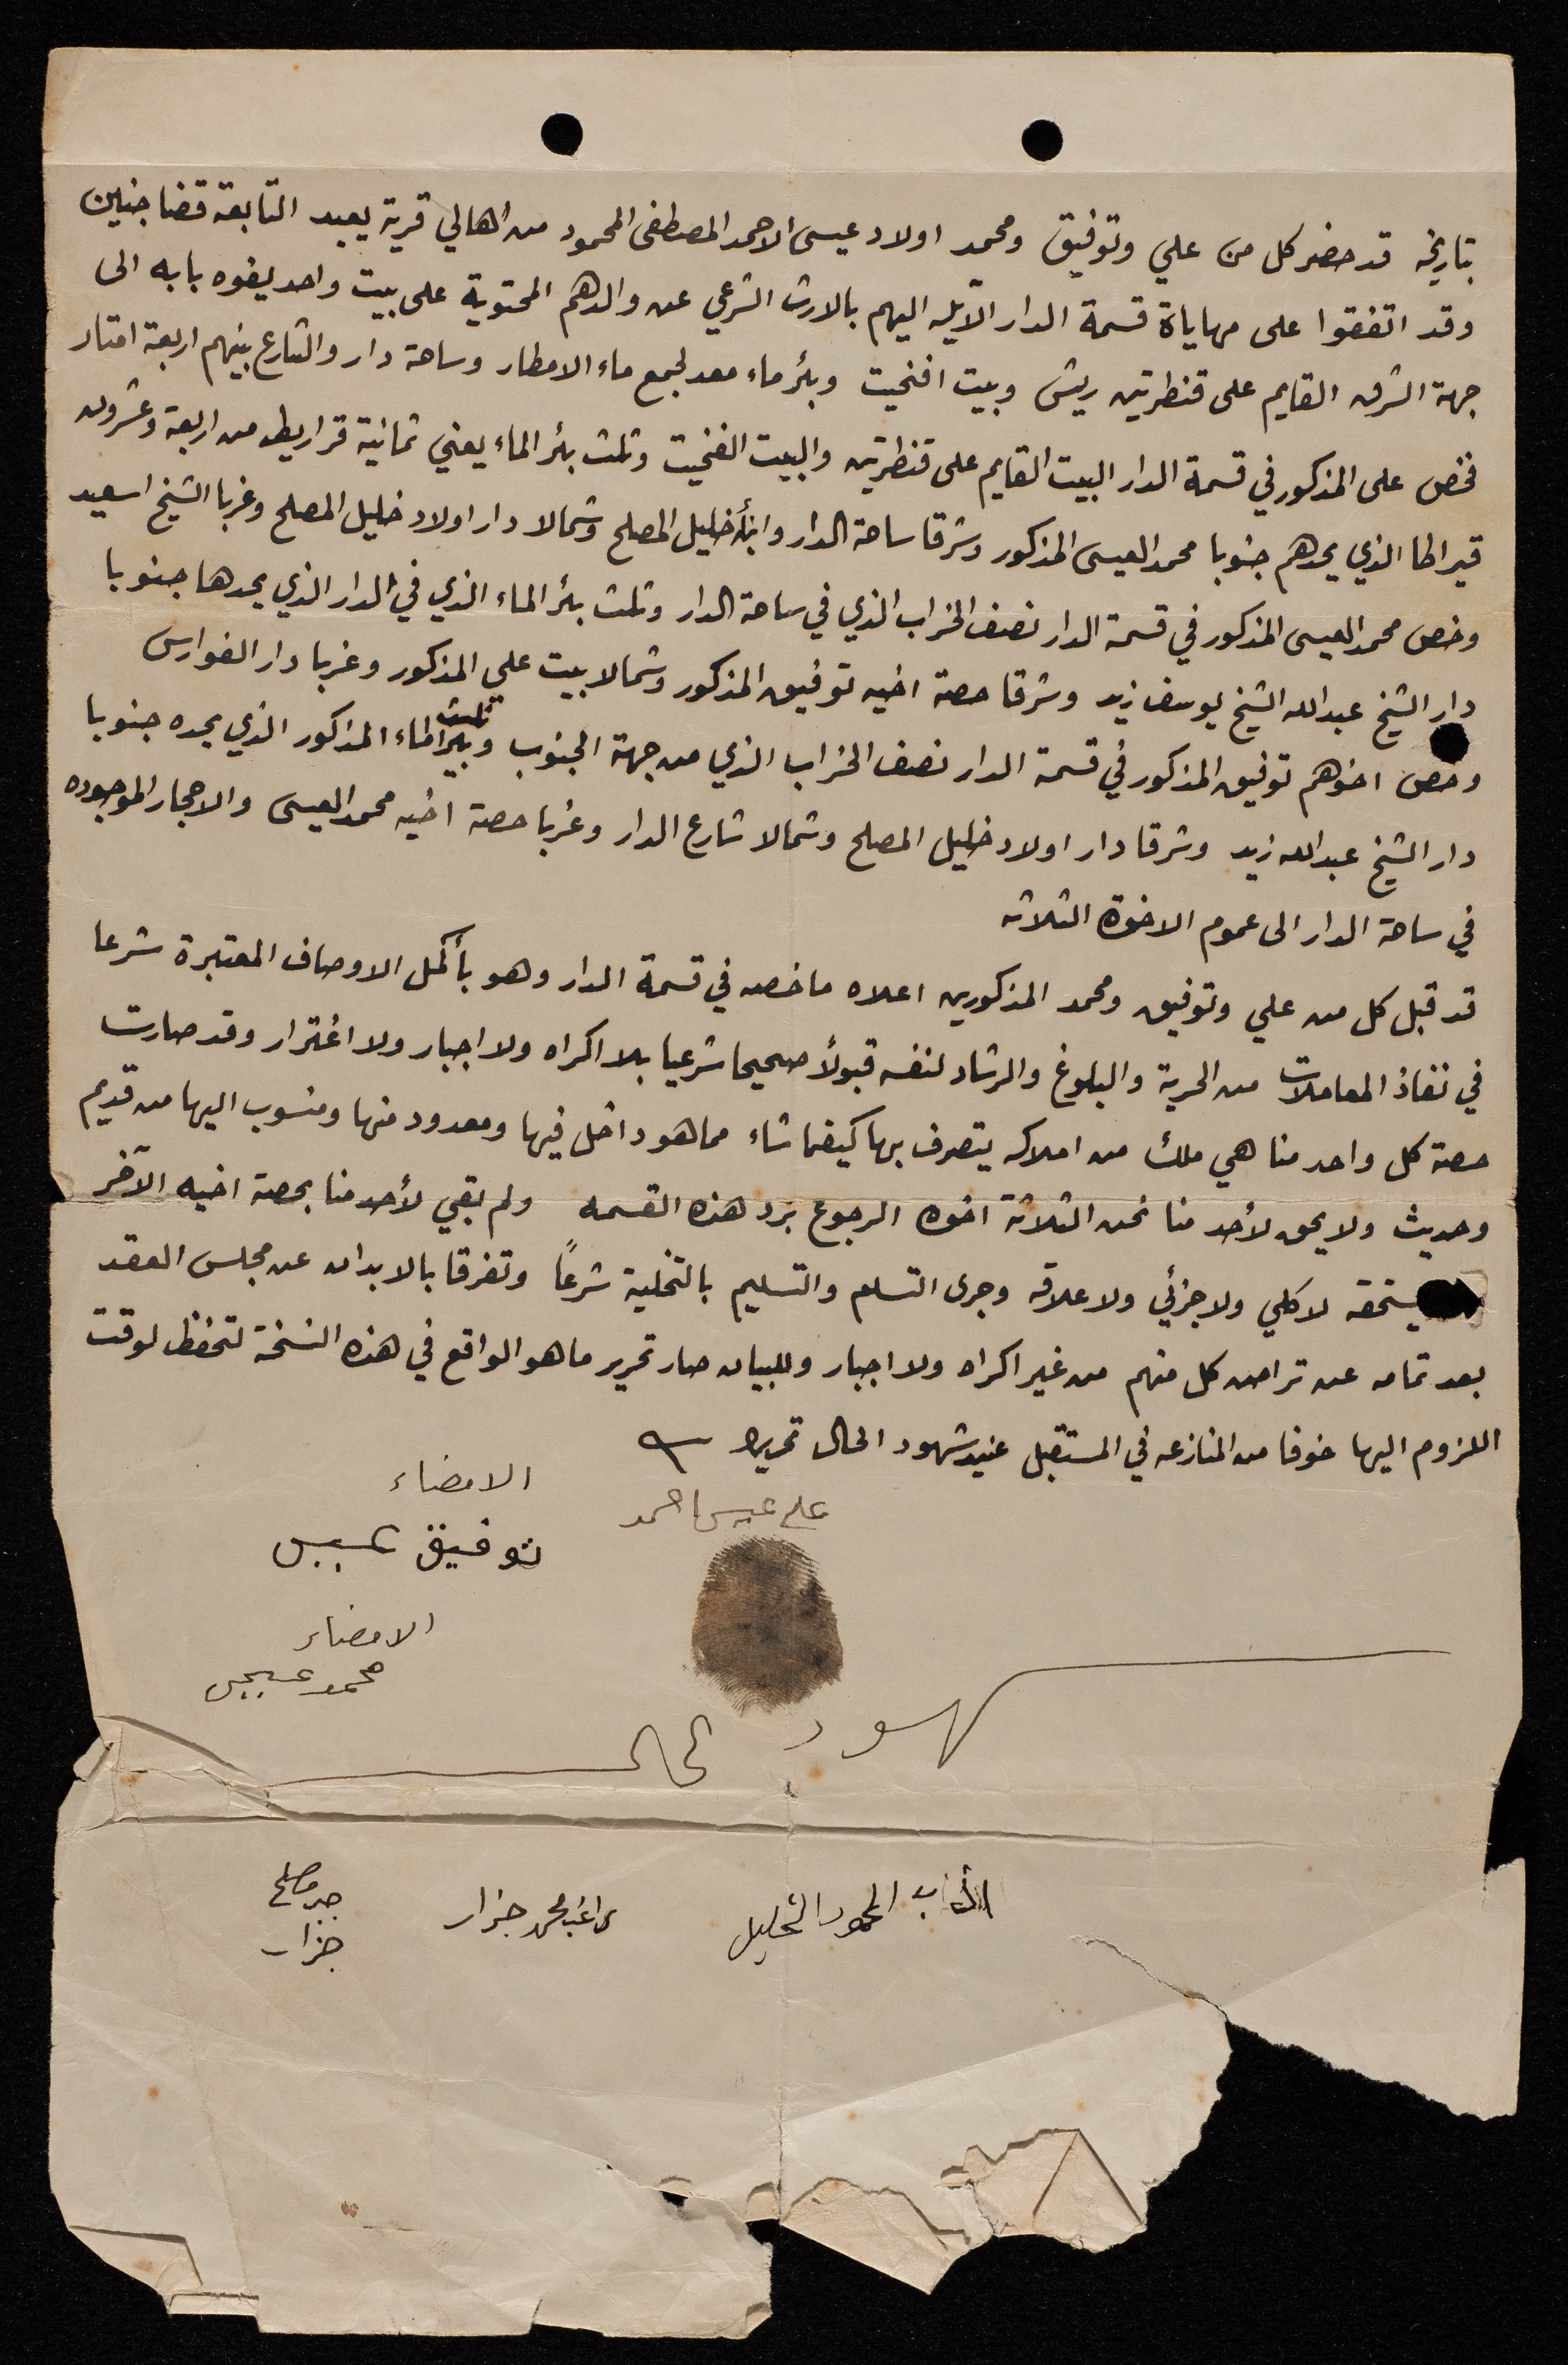 بتاريخه قد حضر كل من علي وتوفيق ومحمد اولاد عيسى الاحمد المصطفى المحمود من اهالي قرية يعبد التابعة قضا جنين
وقد اتفقوا على مهاياة قسمة الدار الآيله اليهم بالارث الشرعي عن والدهم المحتوية على بيت واحد يفوه بابه الى
جهة الشرق القايم على قنطرتين ريش وبيت افنحيت وبئر ماء معد لجمع ماء الامطار وساحة دار والشارع بينهم اربعة امتار
فخص على المذكور في قسمة الدار البيت القايم على قنطرتين والبيت الفنحيت وثلث بئر الماء يعني ثمانية قراريط من اربعة وعشرون
قيراطا الذي يحدهم جنوبا محمد العيسى المذكور وشرقا ساحة الدار وابنأ خليل المصلح وشمالا دار اولاد خليل المصلح وغربا الشيخ اسعيد
وخص محمد العيسى المذكور في قسمة الدار نصف الخراب الذي في ساحة الدار وثلث بئر الماء الذي في الدار الذي يحدها جنوبا
دار الشيخ عبدالله الشيخ يوسف زيد وشرقا حصة اخيه توفيق المذكور وشمالا بيت علي المذكور وغربا دار الفوارس
وخص اخوهم توفيق المذكور في قسمة الدار نصف الخراب الذي من جهة الجنوب وثلث بير الماء المذكور الذي يحده جنوبا
دار الشيخ عبدالله زيد وشرقا دار اولاد خليل المصلح وشمالا شارع الدار وغربا حصة اخيه محمد العيسى والاحجار الموجوده
في ساحة الدار الى عموم الاخوة الثلاثه
قد قبل كل من علي وتوفيق ومحمد المذكورين اعلاه ما خصه في قسمة الدار وهو بأكمل الاوصاف المعتبرة شرعا
في نفاذ المعاملات من الحرية والبلوغ والرشاد لنفسه قبولاً صحيحا شرعيا بلا اكراه ولا اجبار ولا اغترار وقد صارت
حصة كل واحد منا هي ملك من املاكه يتصرف بها كيفما شاء مما هو داخل فيها ومعدود منها ومنسوب اليها من قديم
وحديث ولا يحق لأحد منا نحن الثلاثة اخوه الرجوع برد هذه القسمه ولم بقي لأحد منا بحصة اخيه الآخر
يستحقه لا كلي ولا جزئي ولا علاقه وجرى التسلم والتسليم بالتخلية شرعاً وتفرقا بالابدان عن مجلس العقد
بعد تمامه عن تراض كل منهم من غير اكراه ولا اجبار وللبيان صار تحرير ما هو الواقع في هذه النسخة لتحفظ لوقت
اللزوم اليها خوفا من المنازعه في المستقبل عند شهود الحال تحريرا
علي عيسى احمد
الامضاء
توفيق عيسى
الامضاء
محمد عيسى
شهود الحال
المحمود الخليل
راغب محمد جرار
مصلح
جرار